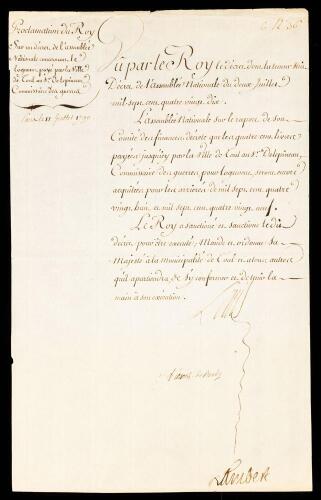 Proclamation du Roy
Sur un decret de l'assemblée
Nationale concernant le
Logement payé par la Ville
de Toul au Sr. Delepineau
Commissaire des guerres
Du 11 Juillet 1790
Vû par le Roy le décret dont la teneur suit
Décret de l'assemblée Nationale du deux Juillet
mil sept cent quatre vingt dix.
L'assemblée Nationale sur le raport de son
Comité des finances, décrete que les quatre cens livres
payées jusqu'icy par la Ville de Toul au Sr. Delepineau
Commissaire des guerres pour logement, seront encore
acquittées pour les arrérages de mil sept cent quatre
vingt huit et mil sept cent quatre vingt neuf.
Le Roy a sanctioné et sanctione le dit
décret pour être executé; Mande et ordonne Sa
Majesté à la municipalité de Toul et a tous autres
qu'il apartiendra de s'y conformer et de tenir la
main à son exécution.
Louis
Lambert